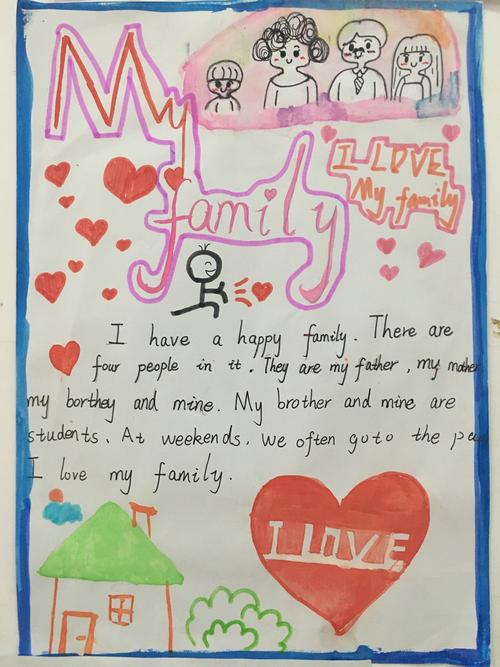 My
family
I LOVE
My family
I have a happy family. There are
four people in it. They are my father, my mother
my borthey and mine. My brother and mine are
students. At weekends. We often go to the
I love my family.
I LOVE